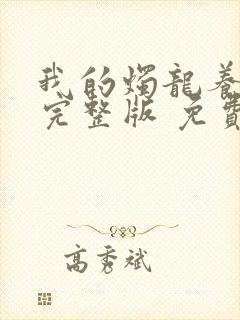 我的燭龍養
完整版 免費
高秀斌